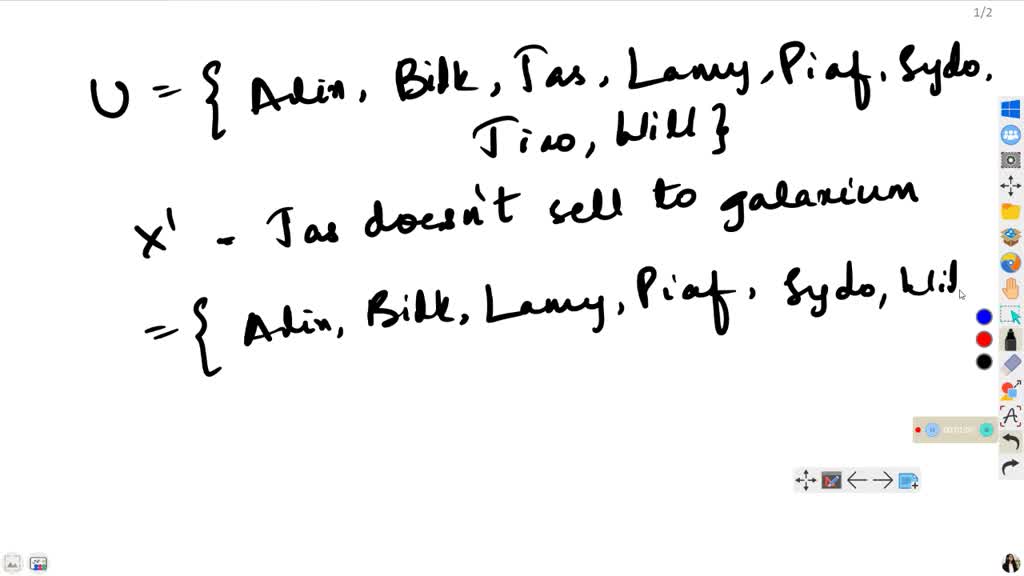 1/2
U = { Adin, Bilk, Jas, Lamy, Piaf, Sydo,
Jiro, Will }
X' - Jas doesn't sell to galaxium
= { Adin, Bilk, Lamy, Piaf, Sydo, Wil